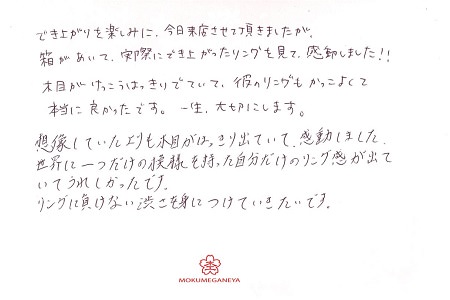 でき上がりを楽しみに、今日来店させて頂きましたが、
箱があいて、実際にでき上がったリングを見て、感動しました!!
木目がけっこうはっきりでていて、彼のリングもかっこよくて
本当に良かったです。一生、大切にします。
想像していたよりも木目がはっきり出ていて、感動しました。
世界に一つだけの模様を持った自分だけのリング感が出て
いてうれしかったです。
リングに負けない渋さを身につけていきたいです。
MOKUMEGANEYA